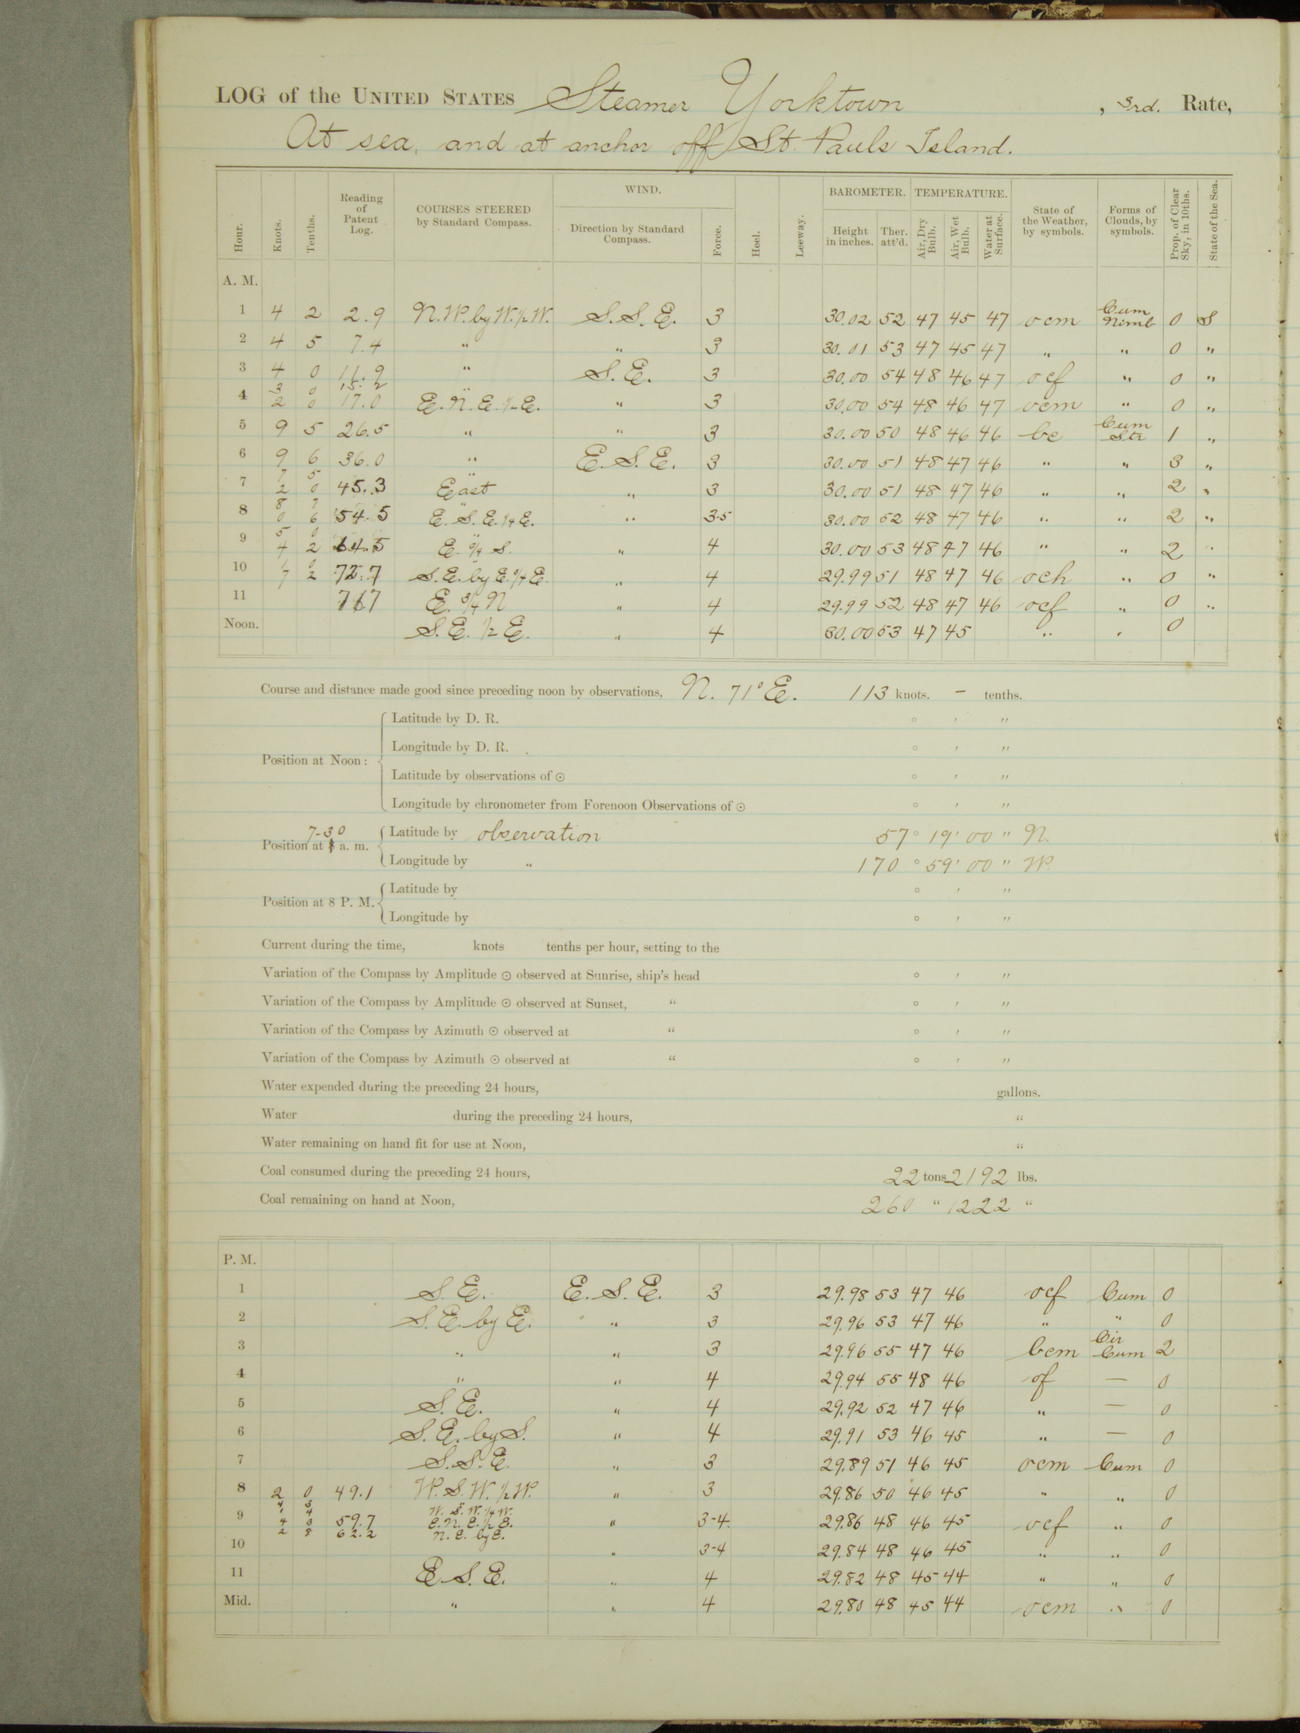 LOG of the UNITED STATES Steamer Yorktown, 3rd. Rate,
At sea, and at anchor off St. Pauls Island.
Hour. Knots. Tenths. Reading of Patent Log. COURSES STEERED by Standard Compass. WIND. Direction by Standard Compass. Force. Heel. Leeway. BAROMETER. Height in inches. Ther. att'd. TEMPERATURE. Air, Dry Bulb. Air, Wet Bulb. Water at Surface. State of the Weather, by symbols. Forms of Clouds, by symbols. Prop. of Clear Sky, in 10ths. State of the Sea.
A. M.
1 4 2 2.9 N.W. by W.½W. S.S.E. 3 30.02 52 47 45 47 ocm Cum Nimb 0 S
2 4 5 7.4 " " 3 30.01 53 47 45 47 " " 0 "
3 4 0 11.9 " S.E. 3 30.00 54 48 46 47 ocf " 0 "
3 0 15.2 "
4 2 0 17.0 E.N.E.½E. " 3 30.00 54 48 46 47 ocm " 0 "
5 9 5 26.5 " " 3 30.00 50 48 46 46 bc Cum Str 1 "
6 9 6 36.0 " E.S.E. 3 30.00 51 48 47 46 " " 3 "
7 5 "
7 2 0 45.3 East " 3 30.00 51 48 47 46 " " 2 "
8 0 6 54.5 E.S.E.¼E. " 3-5 30.00 52 48 47 46 " " 2 "
5 0 "
9 4 2 64.5 E.¾S. " 4 30.00 53 48 47 46 " " 2 "
10 7 2 72.7 S.E. by E.¾E. " 4 29.99 51 48 47 46 och " 0 "
11 767 E.¾N " 4 29.99 52 48 47 46 ocf " 0 "
Noon. S.E.½E. " 4 30.00 53 47 45 " " 0
Course and distance made good since preceding noon by observations, N. 71° E. 113 knots. — tenths.
Position at Noon:
Latitude by D. R. ° ′ ″
Longitude by D. R. ° ′ ″
Latitude by observations of ☉ ° ′ ″
Longitude by chronometer from Forenoon Observations of ☉ ° ′ ″
7-30
Position at 8 a. m. Latitude by observation 57° 19′ 00″ N.
Longitude by " 170° 59′ 00″ W.
Position at 8 P. M. Latitude by ° ′ ″
Longitude by ° ′ ″
Current during the time, knots tenths per hour, setting to the
Variation of the Compass by Amplitude ☉ observed at Sunrise, ship's head ° ′ ″
Variation of the Compass by Amplitude ☉ observed at Sunset, " ° ′ ″
Variation of the Compass by Azimuth ☉ observed at " ° ′ ″
Variation of the Compass by Azimuth ☉ observed at " ° ′ ″
Water expended during the preceding 24 hours, gallons.
Water during the preceding 24 hours, "
Water remaining on hand fit for use at Noon, "
Coal consumed during the preceding 24 hours, 22 tons 2192 lbs.
Coal remaining on hand at Noon, 260 " 1222 "
P. M.
1 S.E. E.S.E. 3 29.98 53 47 46 ocf Cum 0
2 S.E. by E. " 3 29.96 53 47 46 " " 0
3 " " 3 29.96 55 47 46 bcm Cir Cum 2
4 " " 4 29.94 55 48 46 of — 0
5 S.E. " 4 29.92 52 47 46 " — 0
6 S.E. by S. " 4 29.91 53 46 45 " — 0
7 S.S.E. " 3 29.89 51 46 45 ocm Cum 0
8 2 0 49.1 W.S.W.½W. " 3 29.86 50 46 45 " " 0
W.S.W.¼W.
9 4 8 59.7 E.N.E.½E. " 3-4 29.86 48 46 45 ocf " 0
2 8 62.2 N.E. by E.
10 " 3-4 29.84 48 46 45 " " 0
11 E.S.E. " 4 29.82 48 45 44 " " 0
Mid. " " 4 29.80 48 45 44 ocm " 0